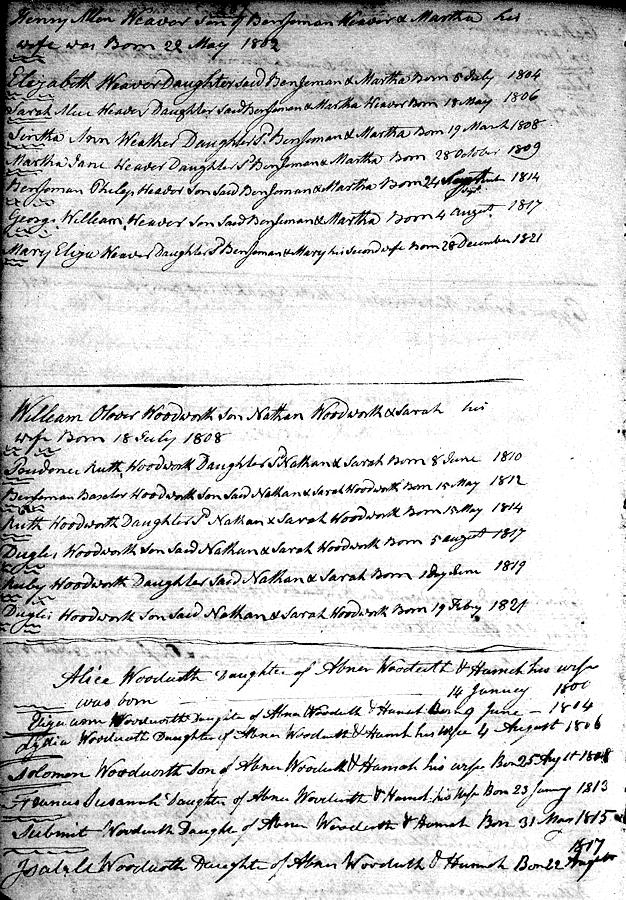 Henry Allen Weaver Son of Benjeman Weaver & Martha his
wife was Born 22 May 1802
Elizabeth Weaver Daughter Said Benjeman & Martha Born 5 July 1804
Sarah Alice Weaver Daughter Said Benjeman & Martha Weaver Born 18 May 1806
Sintha Ann Weather Daughter Sd Benjeman & Martha Born 19 March 1808
Martha Jane Weaver Daughter Sd Benjeman & Martha Born 28 October 1809
Benjeman Phelps Weaver Son Said Benjeman & Martha Born 24 1814
George William Weaver Son Said Benjeman & Martha Born 4 August 1817
Mary Eliza Weaver Daughter Sd Benjeman & Mary his Second wife Born 28 December 1821
William Olover Woodworth Son Nathan Woodworth & Sarah his
wife Born 18 July 1808
Ruth Woodworth Daughter Sd Nathan & Sarah Born 8 June 1810
Benjeman Woodworth Son Said Nathan & Sarah Woodworth Born 15 May 1812
Ruth Woodworth Daughter Sd Nathan & Sarah Woodworth Born 15 May 1814
Duglis Woodworth Son Said Nathan & Sarah Woodworth Born 5 august 1817
Ruby Woodworth Daughter Said Nathan & Sarah Born 1 Day June 1819
Duglis Woodworth Son Said Nathan & Sarah Woodworth Born 19 Feby 1821
Alice Woodworth Daughter of Abner Woodworth & Hannah his wife
was born 14 January
Woodworth Daughter of Abner Woodworth & Hannah Born 9 June 1804
Lydia Woodworth Daughter of Abner Woodworth & Hannah his Wife 4 August 1806
Solomon Woodworth Son of Abner Woodworth & Hannah his wife Born 25 August 1808
Francis Susanah Daughter of Abner Woodworth & Hannah his Wife Born 23 January 1813
Submit Woodworth Daughter of Abner Woodworth & Hannah Born 31 May 1815
Woodworth Daughter of Abner Woodworth & Hannah Born 22 August 1817